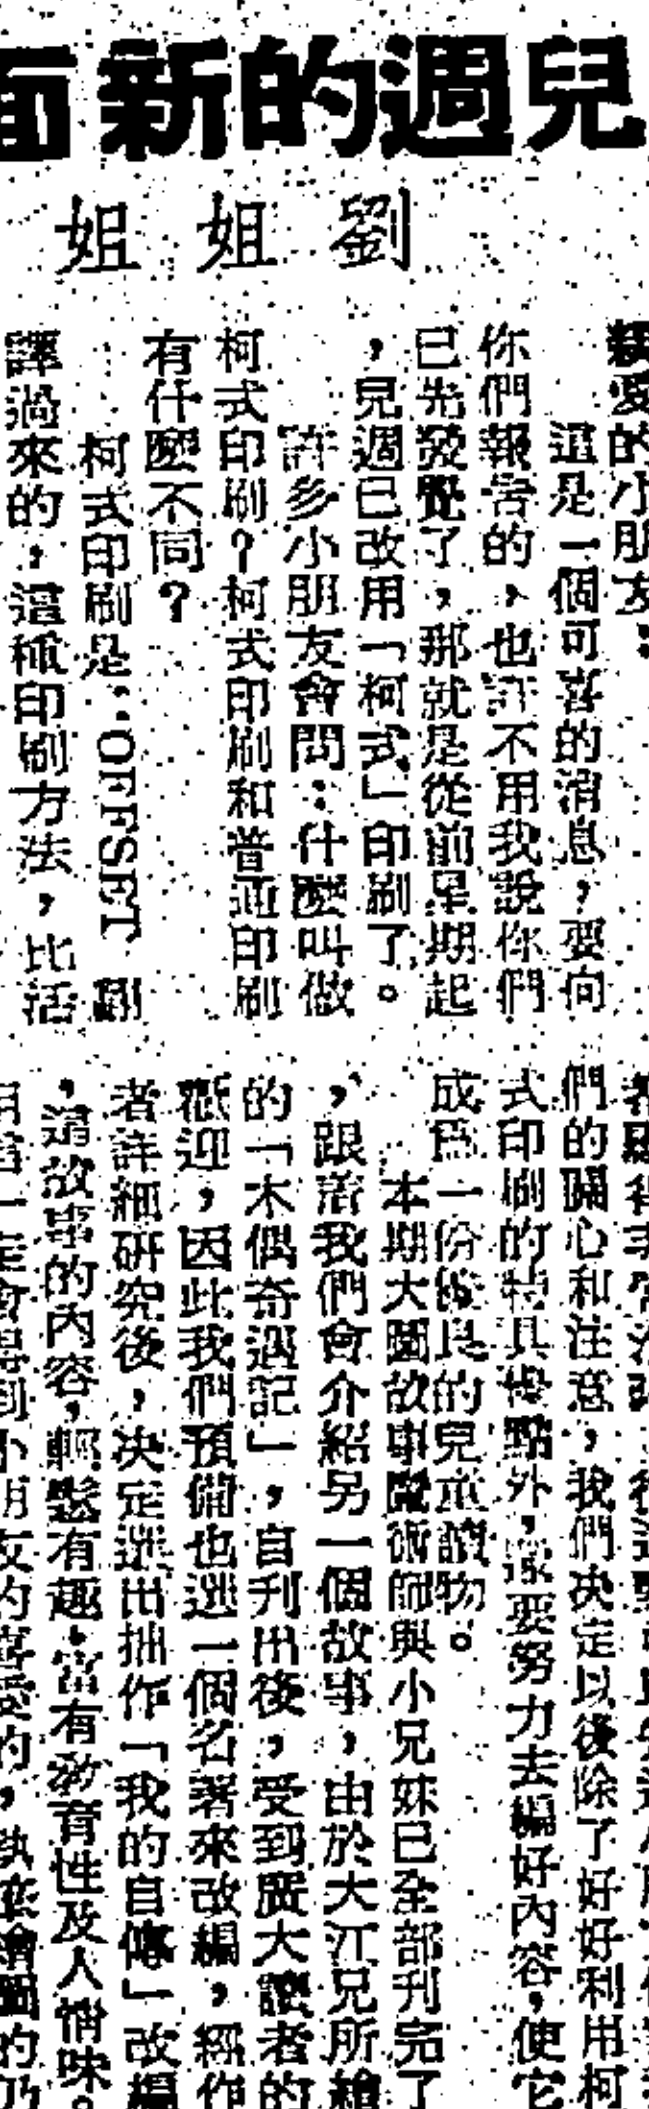 兒週的新面
劉姐姐
親愛的小朋友：
這是一個可喜的消息，要向
你們報告的，也許不用我說你們
已先發覺了，那就是從前星期起
，兒週已改用「柯式」印刷了。
許多小朋友會問：什麼叫做
柯式印刷？柯式印刷和普通印刷
有什麼不同？
柯式印刷是：OFFSET 翻
譯過來的，這種印刷方法，比活
們的關心和注意，我們决定以後除了好好利用柯
式印刷的特具優點外，還要努力去編好內容，使它
成為一份優良的兒童讀物。
本期大圖故事魔術師與小兄妹已全部刊完了
，跟着我們會介紹另一個故事，由於大江兄所繪
的「木偶奇遇記」，自刊出後，受到廣大讀者的
歡迎，因此我們預備也選一個名著來改編，經作
者詳細研究後，决定選出拙作「我的自傳」改編
，這故事的內容，輕鬆有趣，富有教育性及人情味。
一定會得到小朋友的喜愛的，繪圖的仍